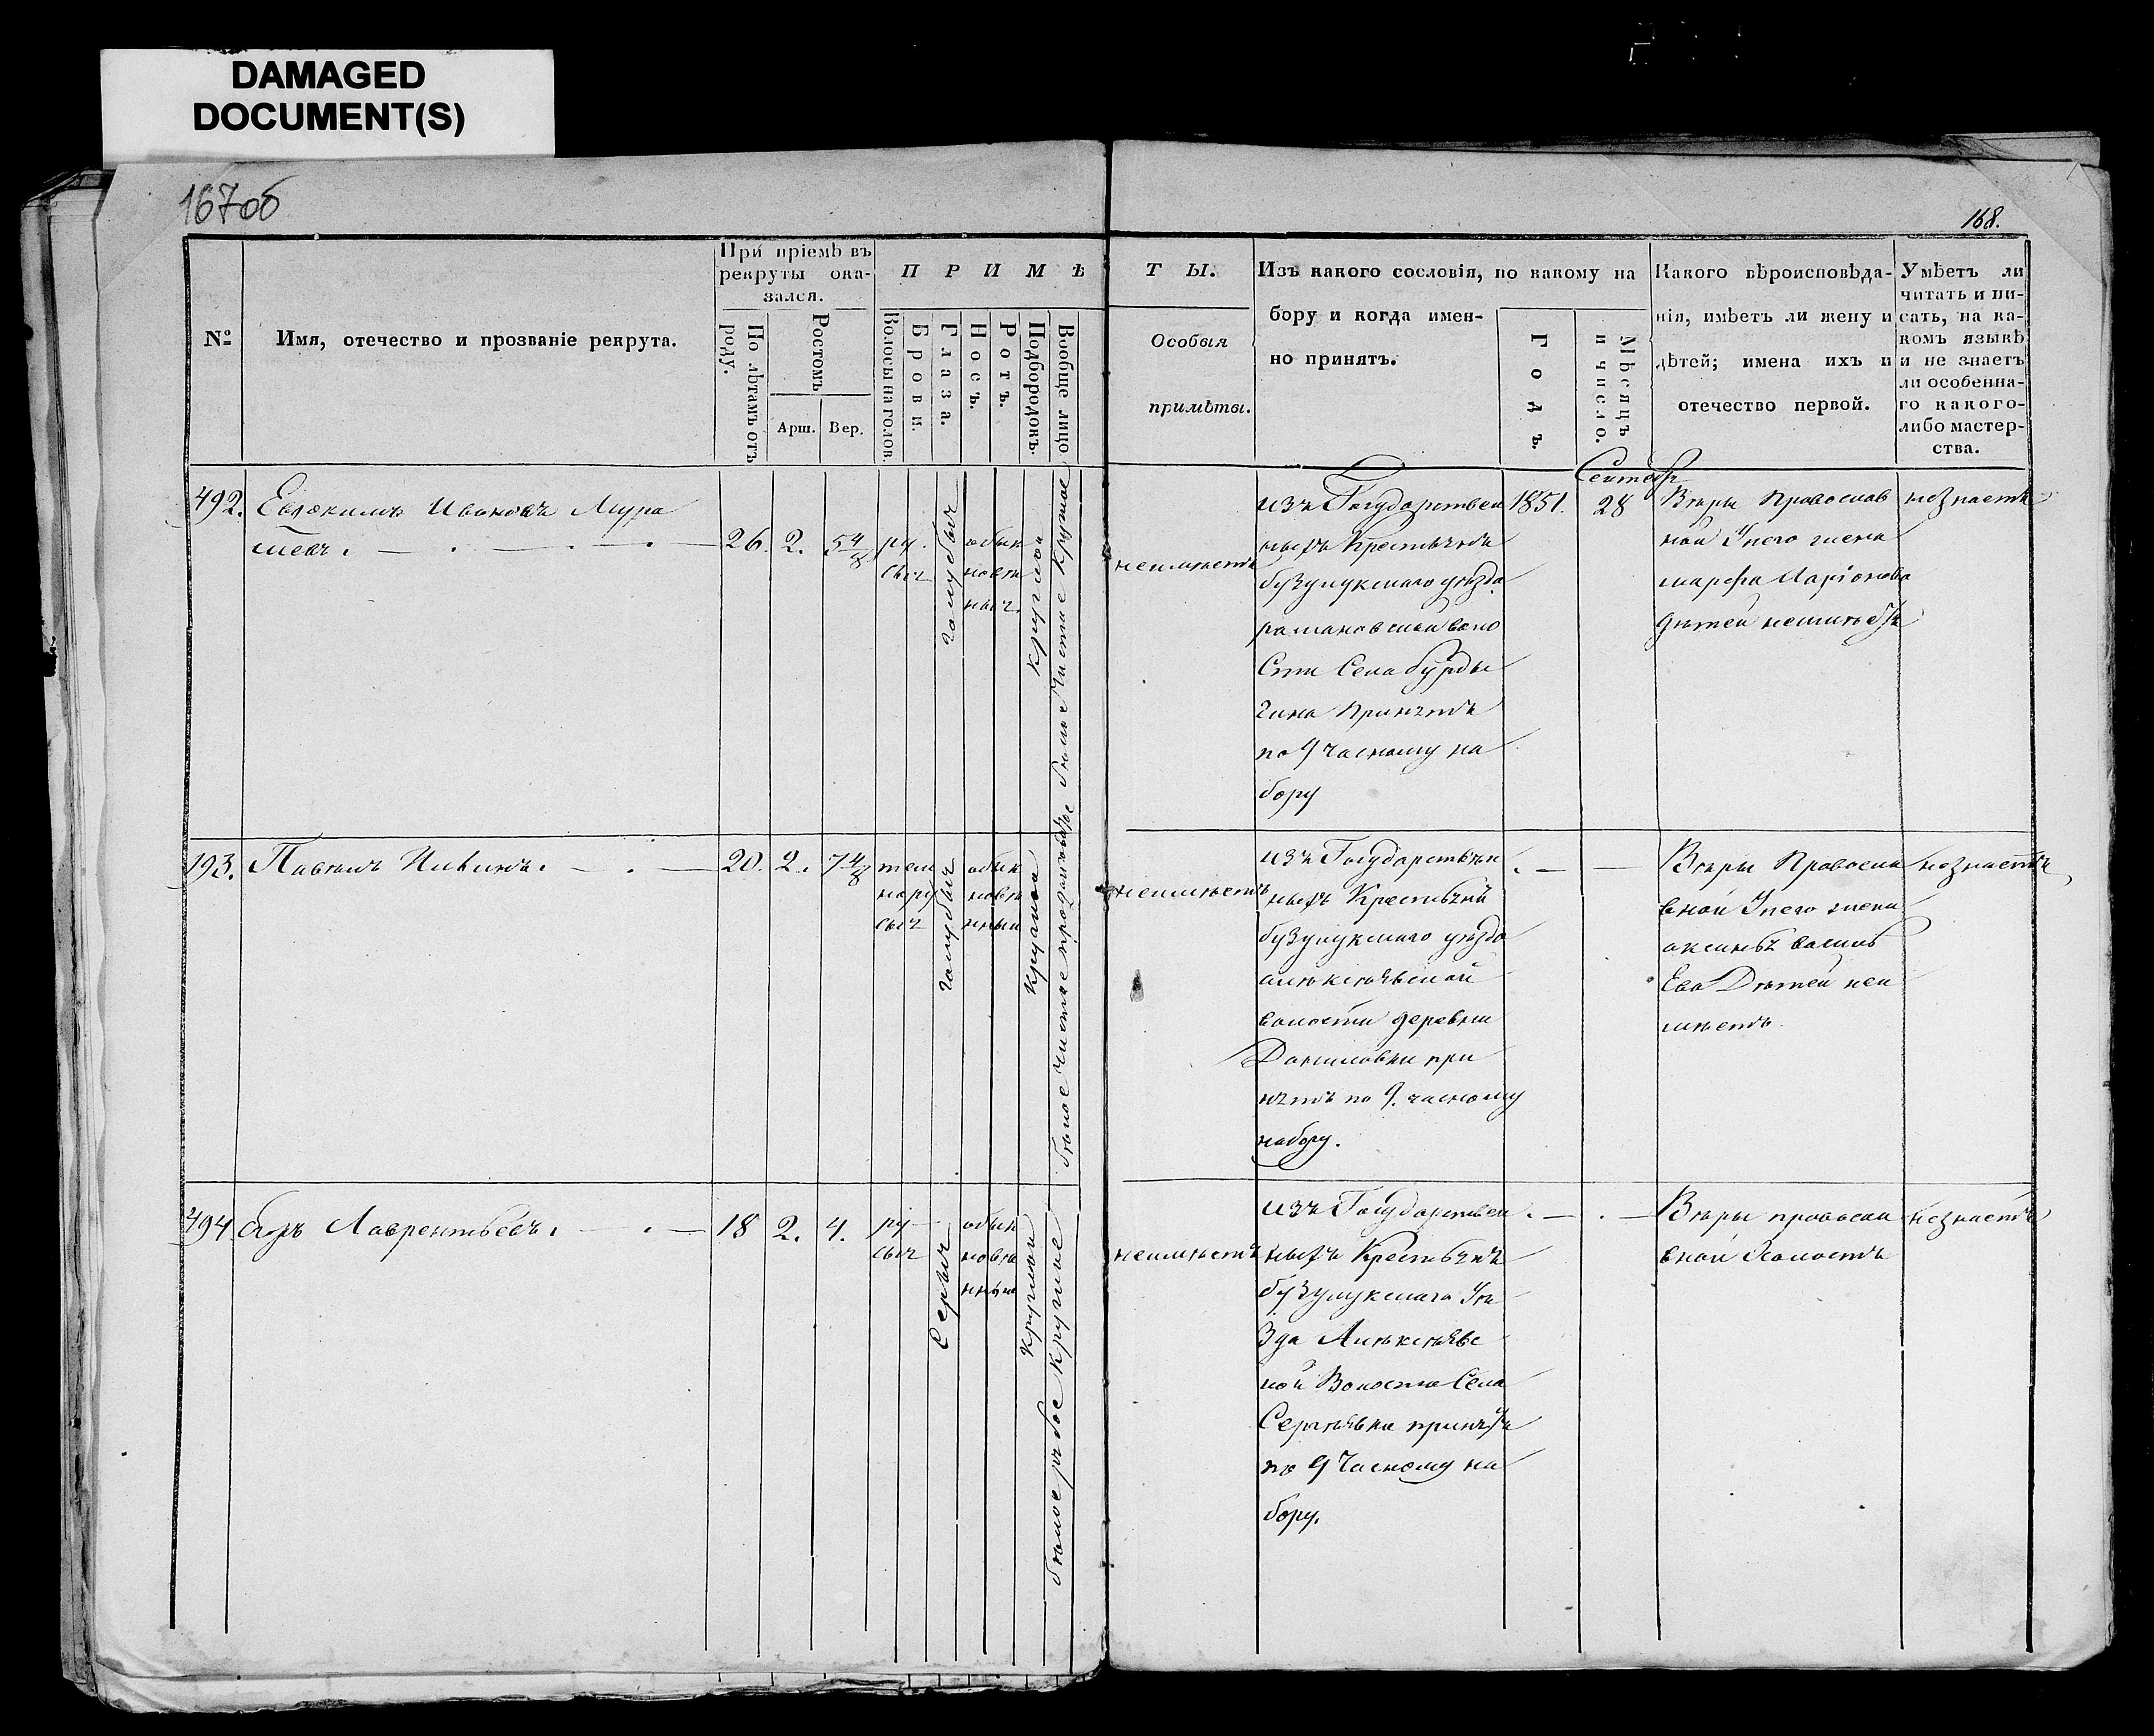 DAMAGED
DOCUMENT(S)
167об
168.
№
Имя, отечество и прозваніе рекрута.
При пріемѣ въ
рекруты ока-
зался.
По лѣтамъ отъ
роду.
Ростомъ
Арш.
Вер.
ПРИМѢ
Волосы на голов.
Брови.
Глаза.
Носъ.
Ротъ.
Подбородокъ.
Вообще лицо
ТЫ.
Особыя
примѣты.
Изъ какого сословія, по какому на
бору и когда имен-
но принятъ.
Годъ.
Мѣсяцъ
и число.
Какого вѣроисповѣда-
нія, имѣетъ ли жену и
дѣтей; имена ихъ и
отечество первой.
Умѣетъ ли
читать и пи-
сать, на ка-
комъ языкѣ
и не знаетъ
ли особенна-
го какого-
либо мастер-
ства.
492. Евдокимъ Ивановъ
26. 2. 5 4/8
ру
сыя
голубыя
обык
новен
ныя
круглой
бѣлое чистое круглое
неимѣетъ
изъ Государствен
ныхъ Крестьянъ
бузулукскаго уѣзда
рамановской воло
сти Села бурды
гина Принятъ
по 9 часному на
бору
1851.
Сентябр
28
Вѣры Православ
ной У него жена
марфа Ларіонова
дѣтей неимѣетъ
незнаетъ
193. Павелъ
20. 2. 7 4/8
тем
нору
сыя
голубыя
обык
новен
ныи
круглой
бѣлое чистое продолговатое
неимѣетъ
изъ Государствен
ныхъ Крестьянъ
бузулукскаго уѣзда
алексѣевской
волости деревни
Даниловки при
нятъ по 9. часному
набору.
Вѣры Правосла
вной У него жена
аксинья василь
Ева Дѣтей неи
мѣетъ
незнаетъ
494 Лаврентьевъ.
18 2. 4.
ру
сыя
Серыя
обык
новен
ныи
круглой
бѣлое рябое круглое
неимѣетъ
изъ Государствен
ныхъ Крестьянъ
бузулукскаго Уѣ
зда Алексѣевс
кой Волости Села
Сергѣевка принятъ
по 9 Часному на
бору.
Вѣры правосла
вной Холостъ
незнаетъ